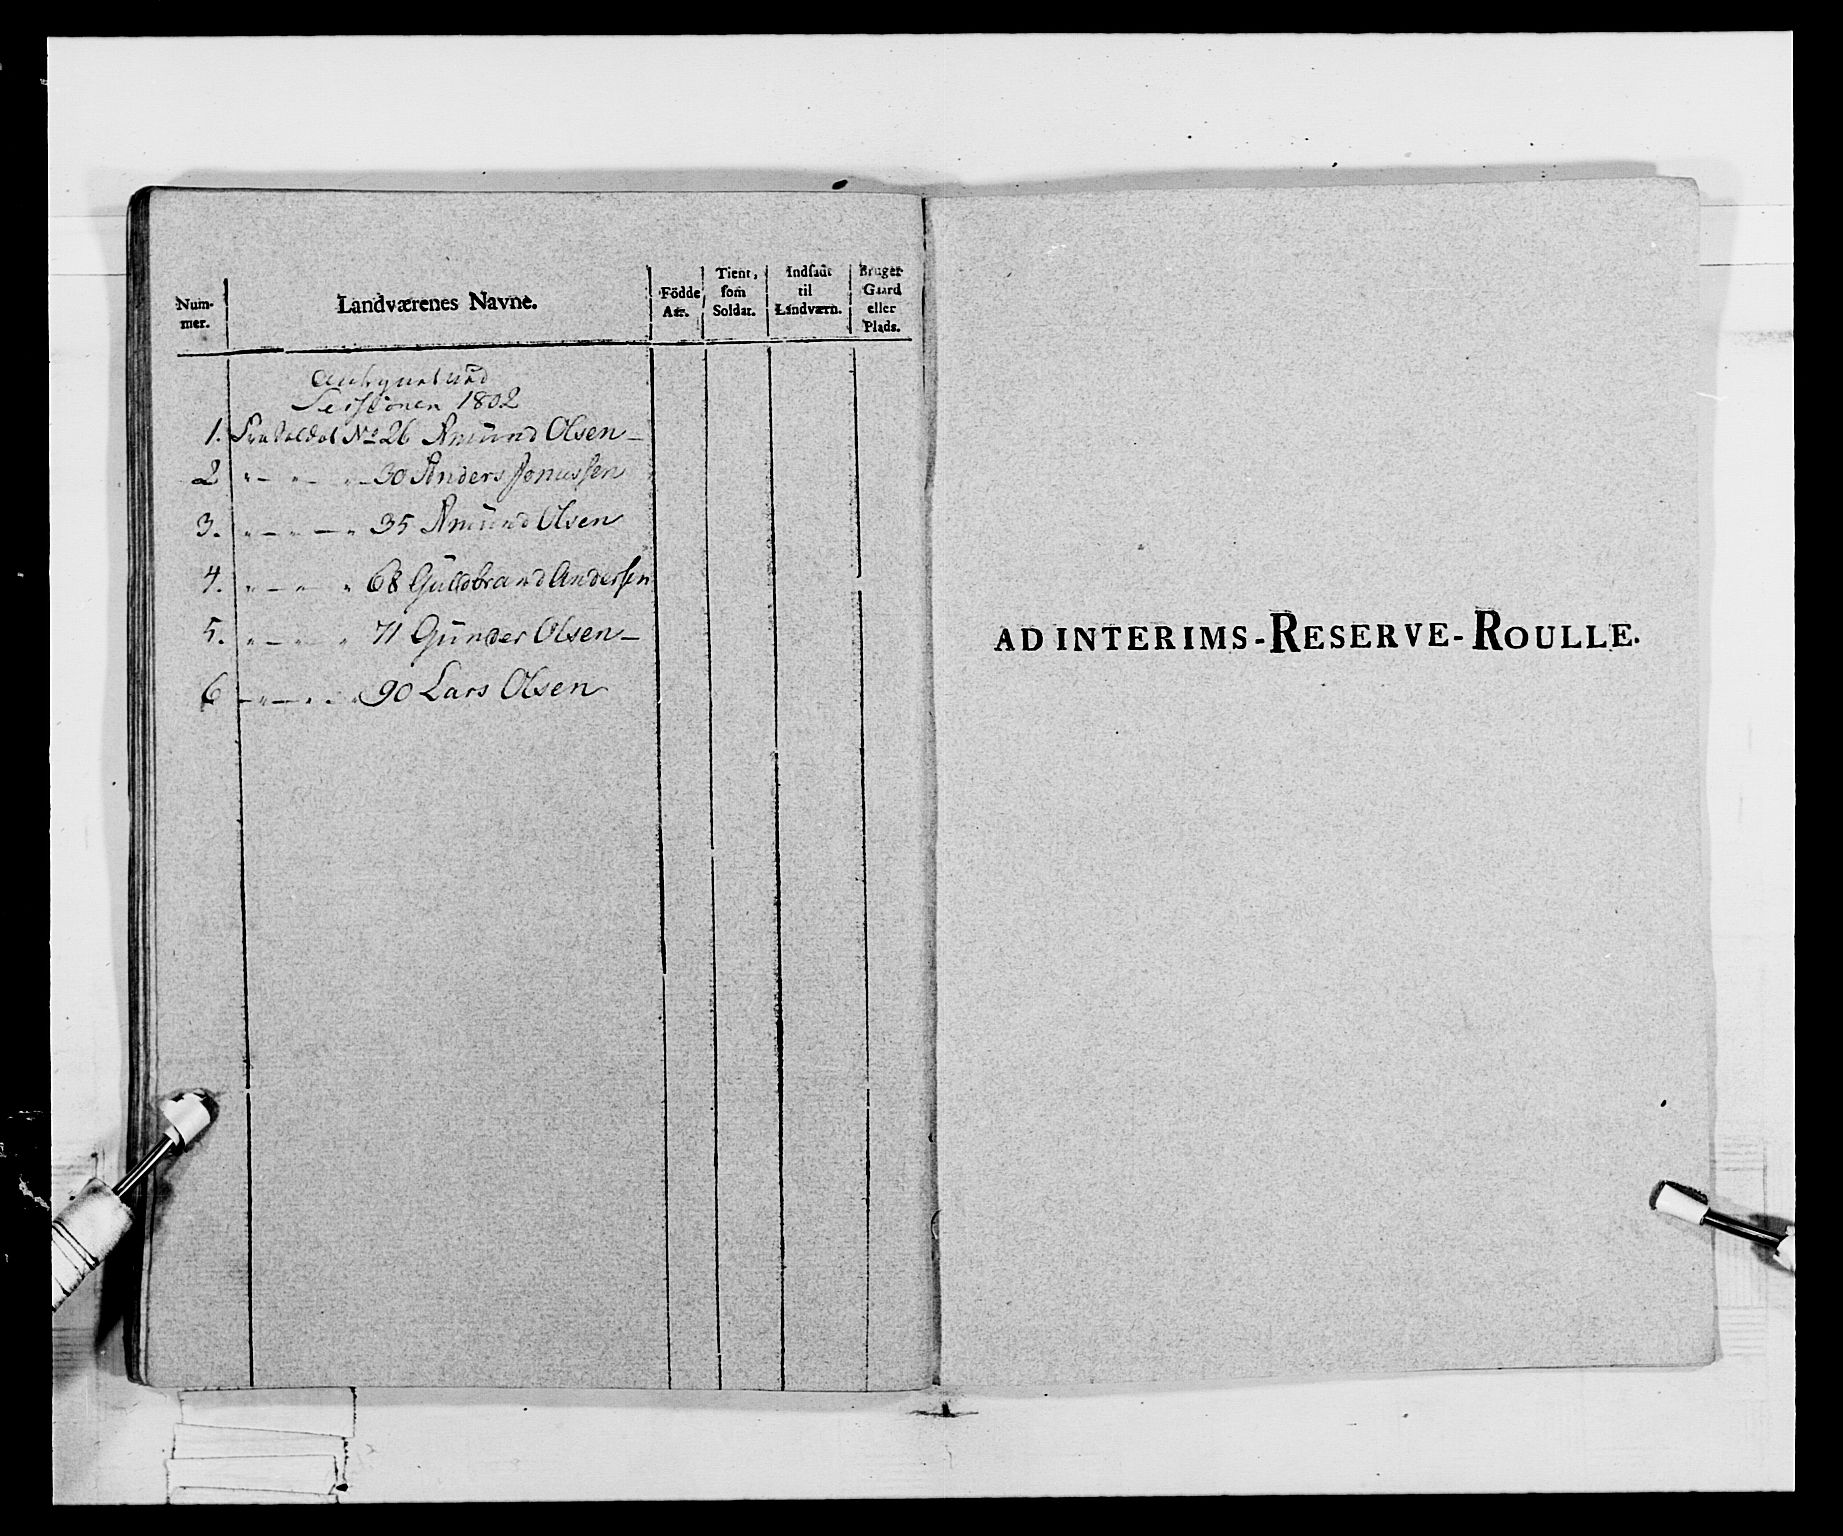 Num-
mer.
Landværenes Navne.
Födde
Aar.
Tient,
som
Soldat.
Indsadt
til
Landværn.
Bruger
Gaard
eller
Plads.
Sessionen 1802
1. No 26 Amund Olsen
2 " " " 30 Anders Jonassen
3. " " " 35 Amund Olsen
4. " " " 68 Guldbrand Andersen
5. " " " 71 Gunder Olsen
6 " " " 90 Lars Olsen
AD INTERIMS-RESERVE-ROULLE.